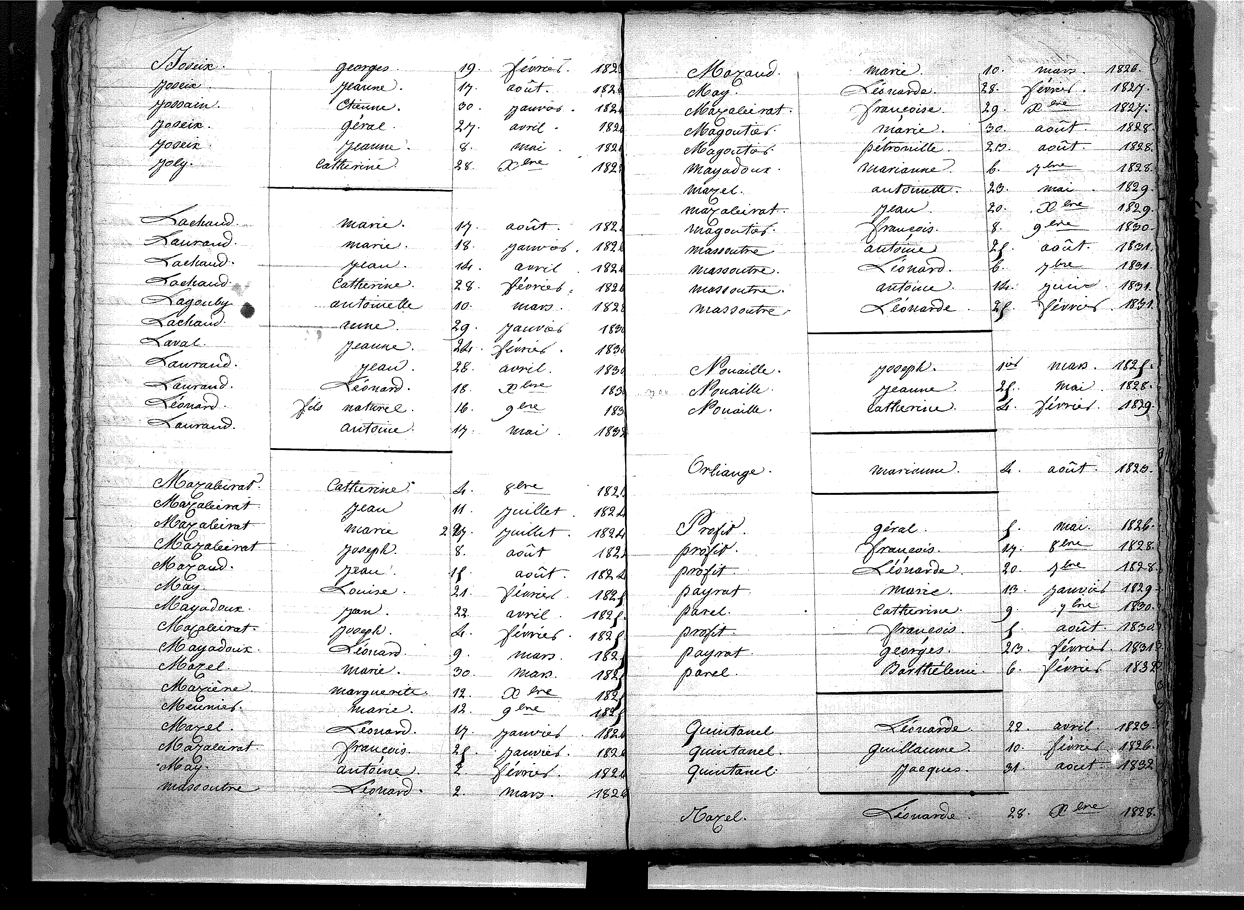 Joseix. georges. 19. février. 182
joseix jeanne. 17. août. 182
jossain Etienne. 30. janvier. 182
joseix. géral. 27. avril. 182
joseix jeanne. 8. mai. 182
joly. Catherine 28. Xbre 182
Lachaud. marie. 17. août. 182
Laurand. marie. 18. janvier. 182
Lachaud. jean. 14. avril. 182
Lachaud. Catherine. 28. février. 182
Lagouby antoinette 10. mars. 1828
Lachaud. anne. 29. janvier 1830
Laval. jeanne. 24. février. 1830
Laurand. jean. 28. avril. 183
Laurand. Léonard. 18. Xbre 183
Léonard. fils naturel. 16. 9bre 183
Laurand. antoine. 17. mai. 183
Mazaleirat. Catherine. 4. 8bre 182
Mazaleirat jean 11. juillet. 1824
Mazaleirat marie 27. juillet. 1824
Mazaleirat joseph. 8. août 182
Mazaud. jean. 15. août. 1824
May. Louise. 21. février. 1825
Mayadoux. jean. 22. avril. 1825
Mazaleirat. joseph. 4. février. 1825
Mayadoux. Léonard. 9. mars. 182
Mazel. marie. 30. mars. 182
Mazière. marguerite. 12. Xbre 182
Meunier. marie. 12. 9bre 1825
Mazel. Léonard. 17. janvier. 182
Mazaleirat françois. 25. janvier. 182
May. antoine. 2. février. 182
massoutre Léonard. 2. mars. 182
Mazaud. marie. 10. mars. 1826.
May. Léonarde. 28. février. 1827.
Mazaleirat. françoise. 29. Xbre 1827.
Magoutier. marie. 30. août. 1828.
Magoutier. pétronille. 23. août. 1828.
mayadoux. marianne. 6. 7bre 1828.
mazel. antoinette. 23. mai. 1829.
mazaleirat. jean. 20. Xbre 1829.
magoutier françois. 8. 9bre 1830.
massoutre antoine 25. août. 1831.
massoutre. Léonard. 6. 7bre 1831.
massoutre. antoine. 14. juin. 1831.
massoutre. Léonarde. 25. février. 1831.
Nouaille. joseph. 1er mars. 1825.
Nouaille. jeanne. 25. mai. 1828.
Nouaille. Catherine. 4. février. 1829.
Orliange. marianne. 4. août. 1823.
Profit. géral. 5. mai. 1826.
profit. françois. 17. 8bre 1828.
profit Léonarde. 20. 7bre 1828.
payrat marie. 13. janvier 1829.
parel. Catherine. 9. 7bre 1830.
profit. françois. 5. août. 1830
payrat georges. 23. février. 1831
parel. Barthélemi. 6. février. 1832
Quintanel Léonarde 22. avril. 1823.
quintanel guillaume. 10. février 1826.
quintanel. jacques. 31. août. 1832
Razel. Léonarde. 28. Xbre 1828.